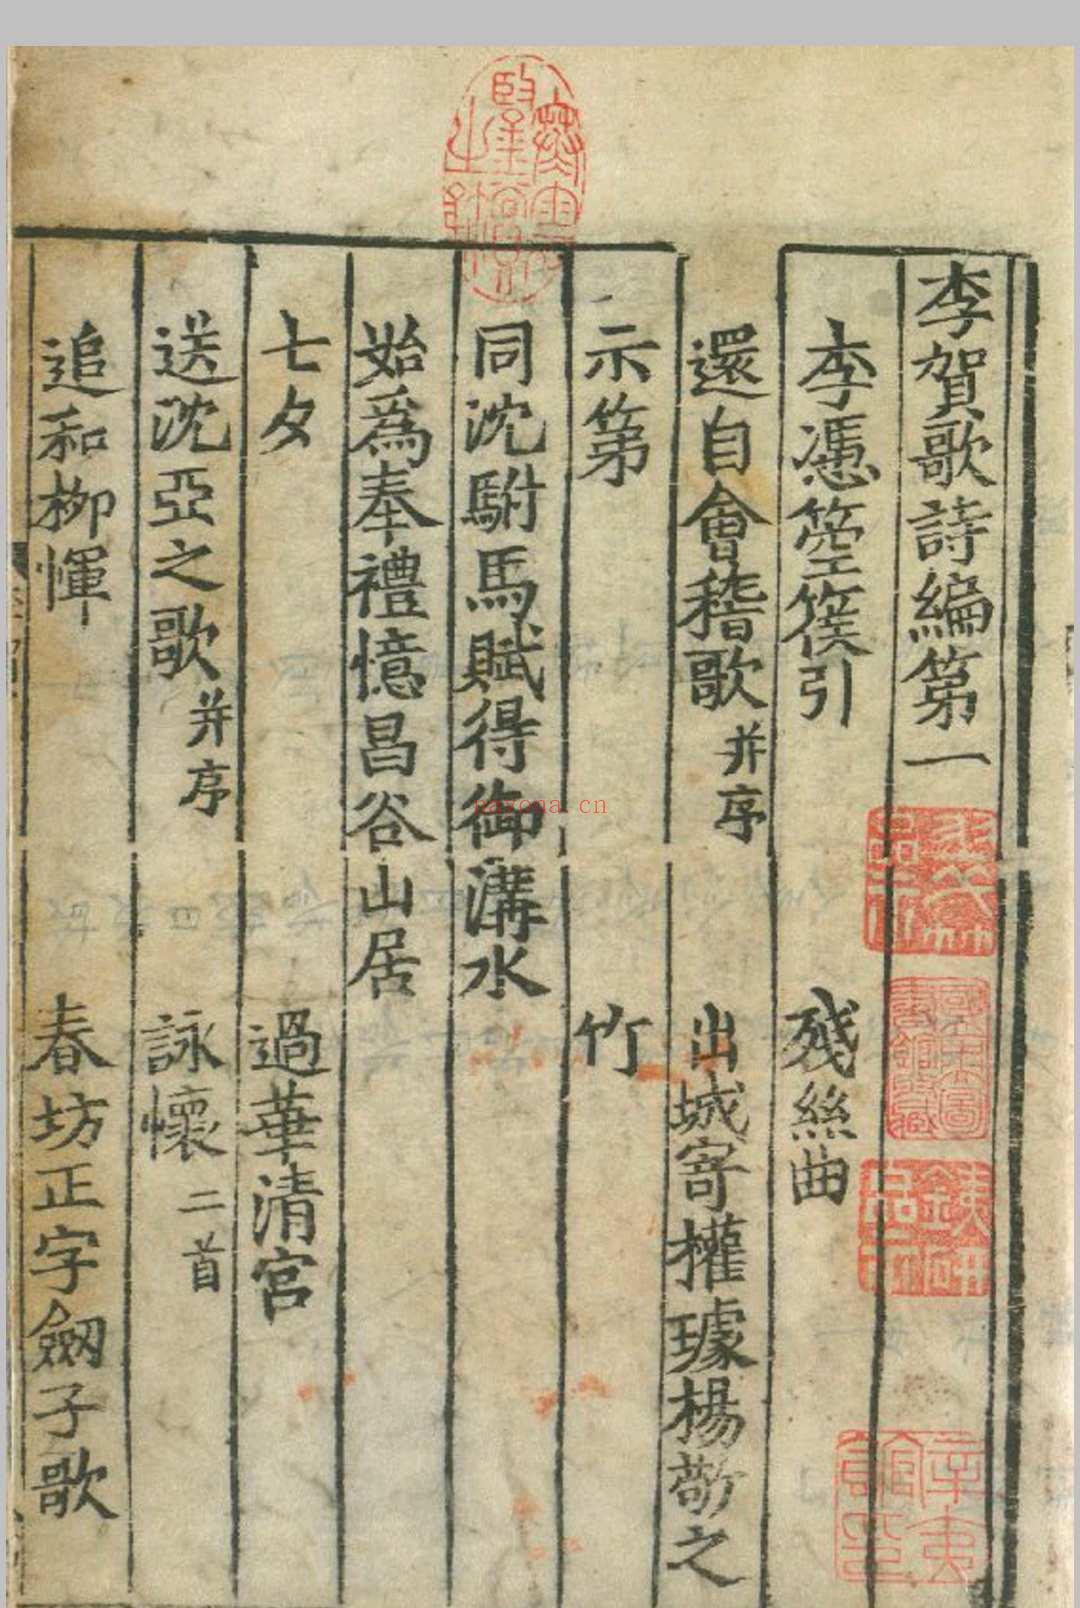 李賀歌詩編第一
李憑箜篌引 殘絲曲
還自會稽歌 并序 出城寄權璩楊敬之
示第 竹
同沈駙馬賦得御溝水
始爲奉禮憶昌谷山居
七夕 過華清宮
送沈亞之歌 并序 詠懷 二首
追和柳惲 春坊正字劒子歌